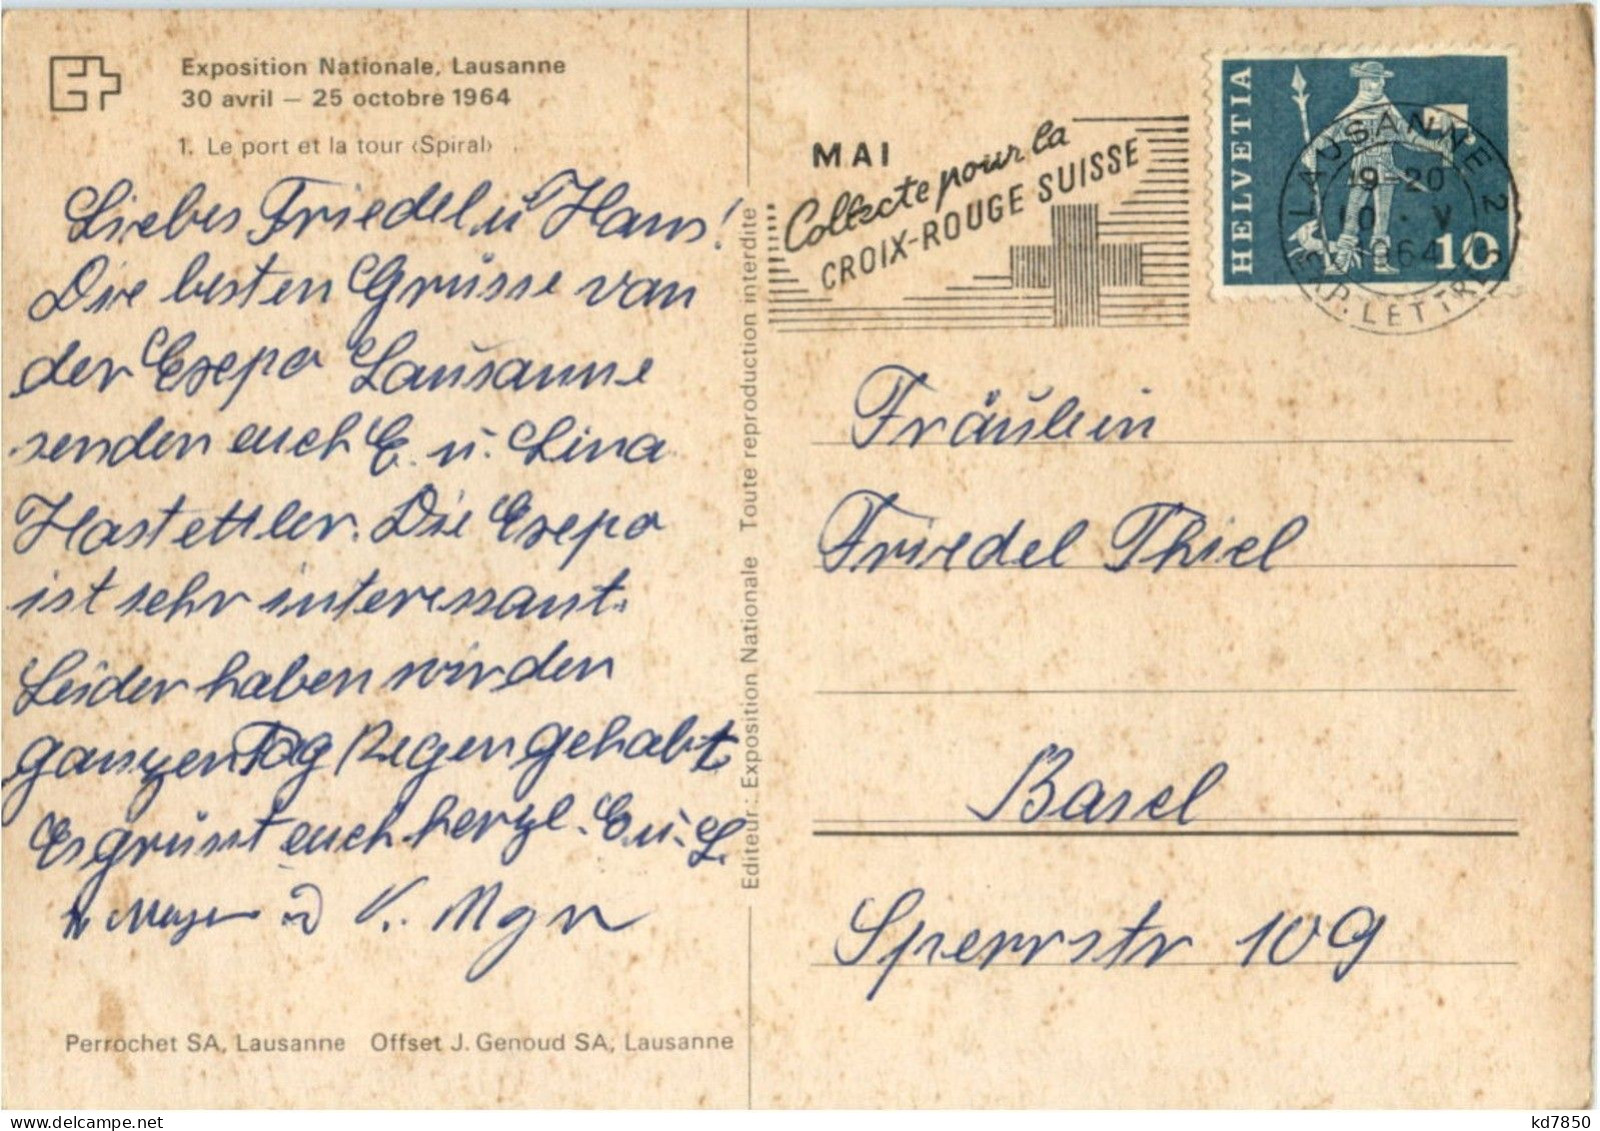 Exposition Nationale, Lausanne
30 avril — 25 octobre 1964
1. Le port et la tour ‹Spiral›
Liebes Friedel u Hans!
Die besten Grüsse von
der Exepo Lausanne
senden euch E. u. Lina
Hostettler. Die Exepo
ist sehr interessant.
Leider haben wir den
ganzen Tag Regen gehabt
Es grüsst euch herzl. E. u. L.
V.
Perrochet SA, Lausanne Offset J. Genoud SA, Lausanne
Editeur: Exposition Nationale Toute reproduction interdite
MAI
Collecte pour la
CROIX-ROUGE SUISSE
HELVETIA
10
LAUSANNE 2
19-20
10. V
1964
EXP. LETTRES
Fräulein
Friedel Thiel
Basel
Sperrstr 109
kd7850